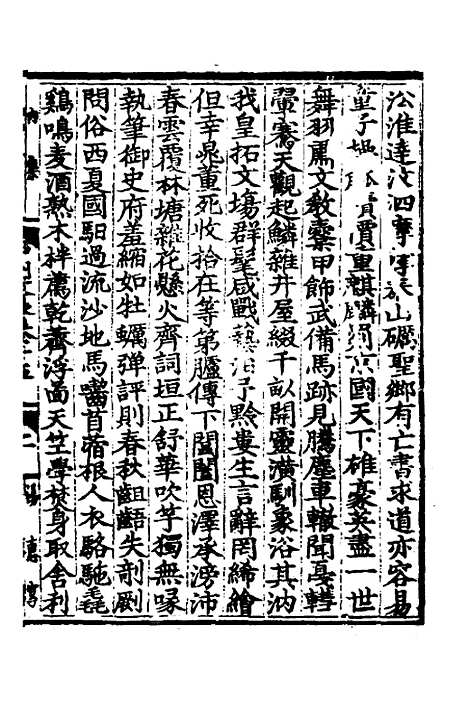 沿淮達汶泗摩厚 山礪聖鄉有亡書求道亦容易
童子 賈重麒麟 京國天下雄豪英盡一世
舞羽馬文教櫜甲飾武備馬跡見騰塵車轍聞憂轊
翬騫天觀起鱗雜井屋綴千畝開靈潢馴象浴其汭
我皇拓文場群髦咸戰藝 予黔婁生言辭罔絺繪
但幸晁董死收拾在等第臚傳下閶闔恩澤承滂沛
春雲覆林塘雜花懸火齊詞垣正舒華吹竽獨無喙
執筆御史府羞縮如牡蠣彈評則春秋齟齬失剞劂
問俗西夏國馹過流沙地馬嚙苜蓿根人衣駱駞毳
鷄鳴麦酒熟木柈薦乾薺浮圖天竺學焚身取舍利